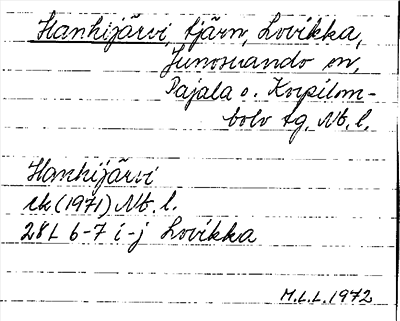 Hanhijärvi, tjärn, Lovikka,
Junosuando sn,
Pajala o. Korpilom-
bolo tg, Nb. l.
Hanhijärvi
ek (1971) Nb. l.
28L 6-7 i-j Lovikka
M.L.L. 1972